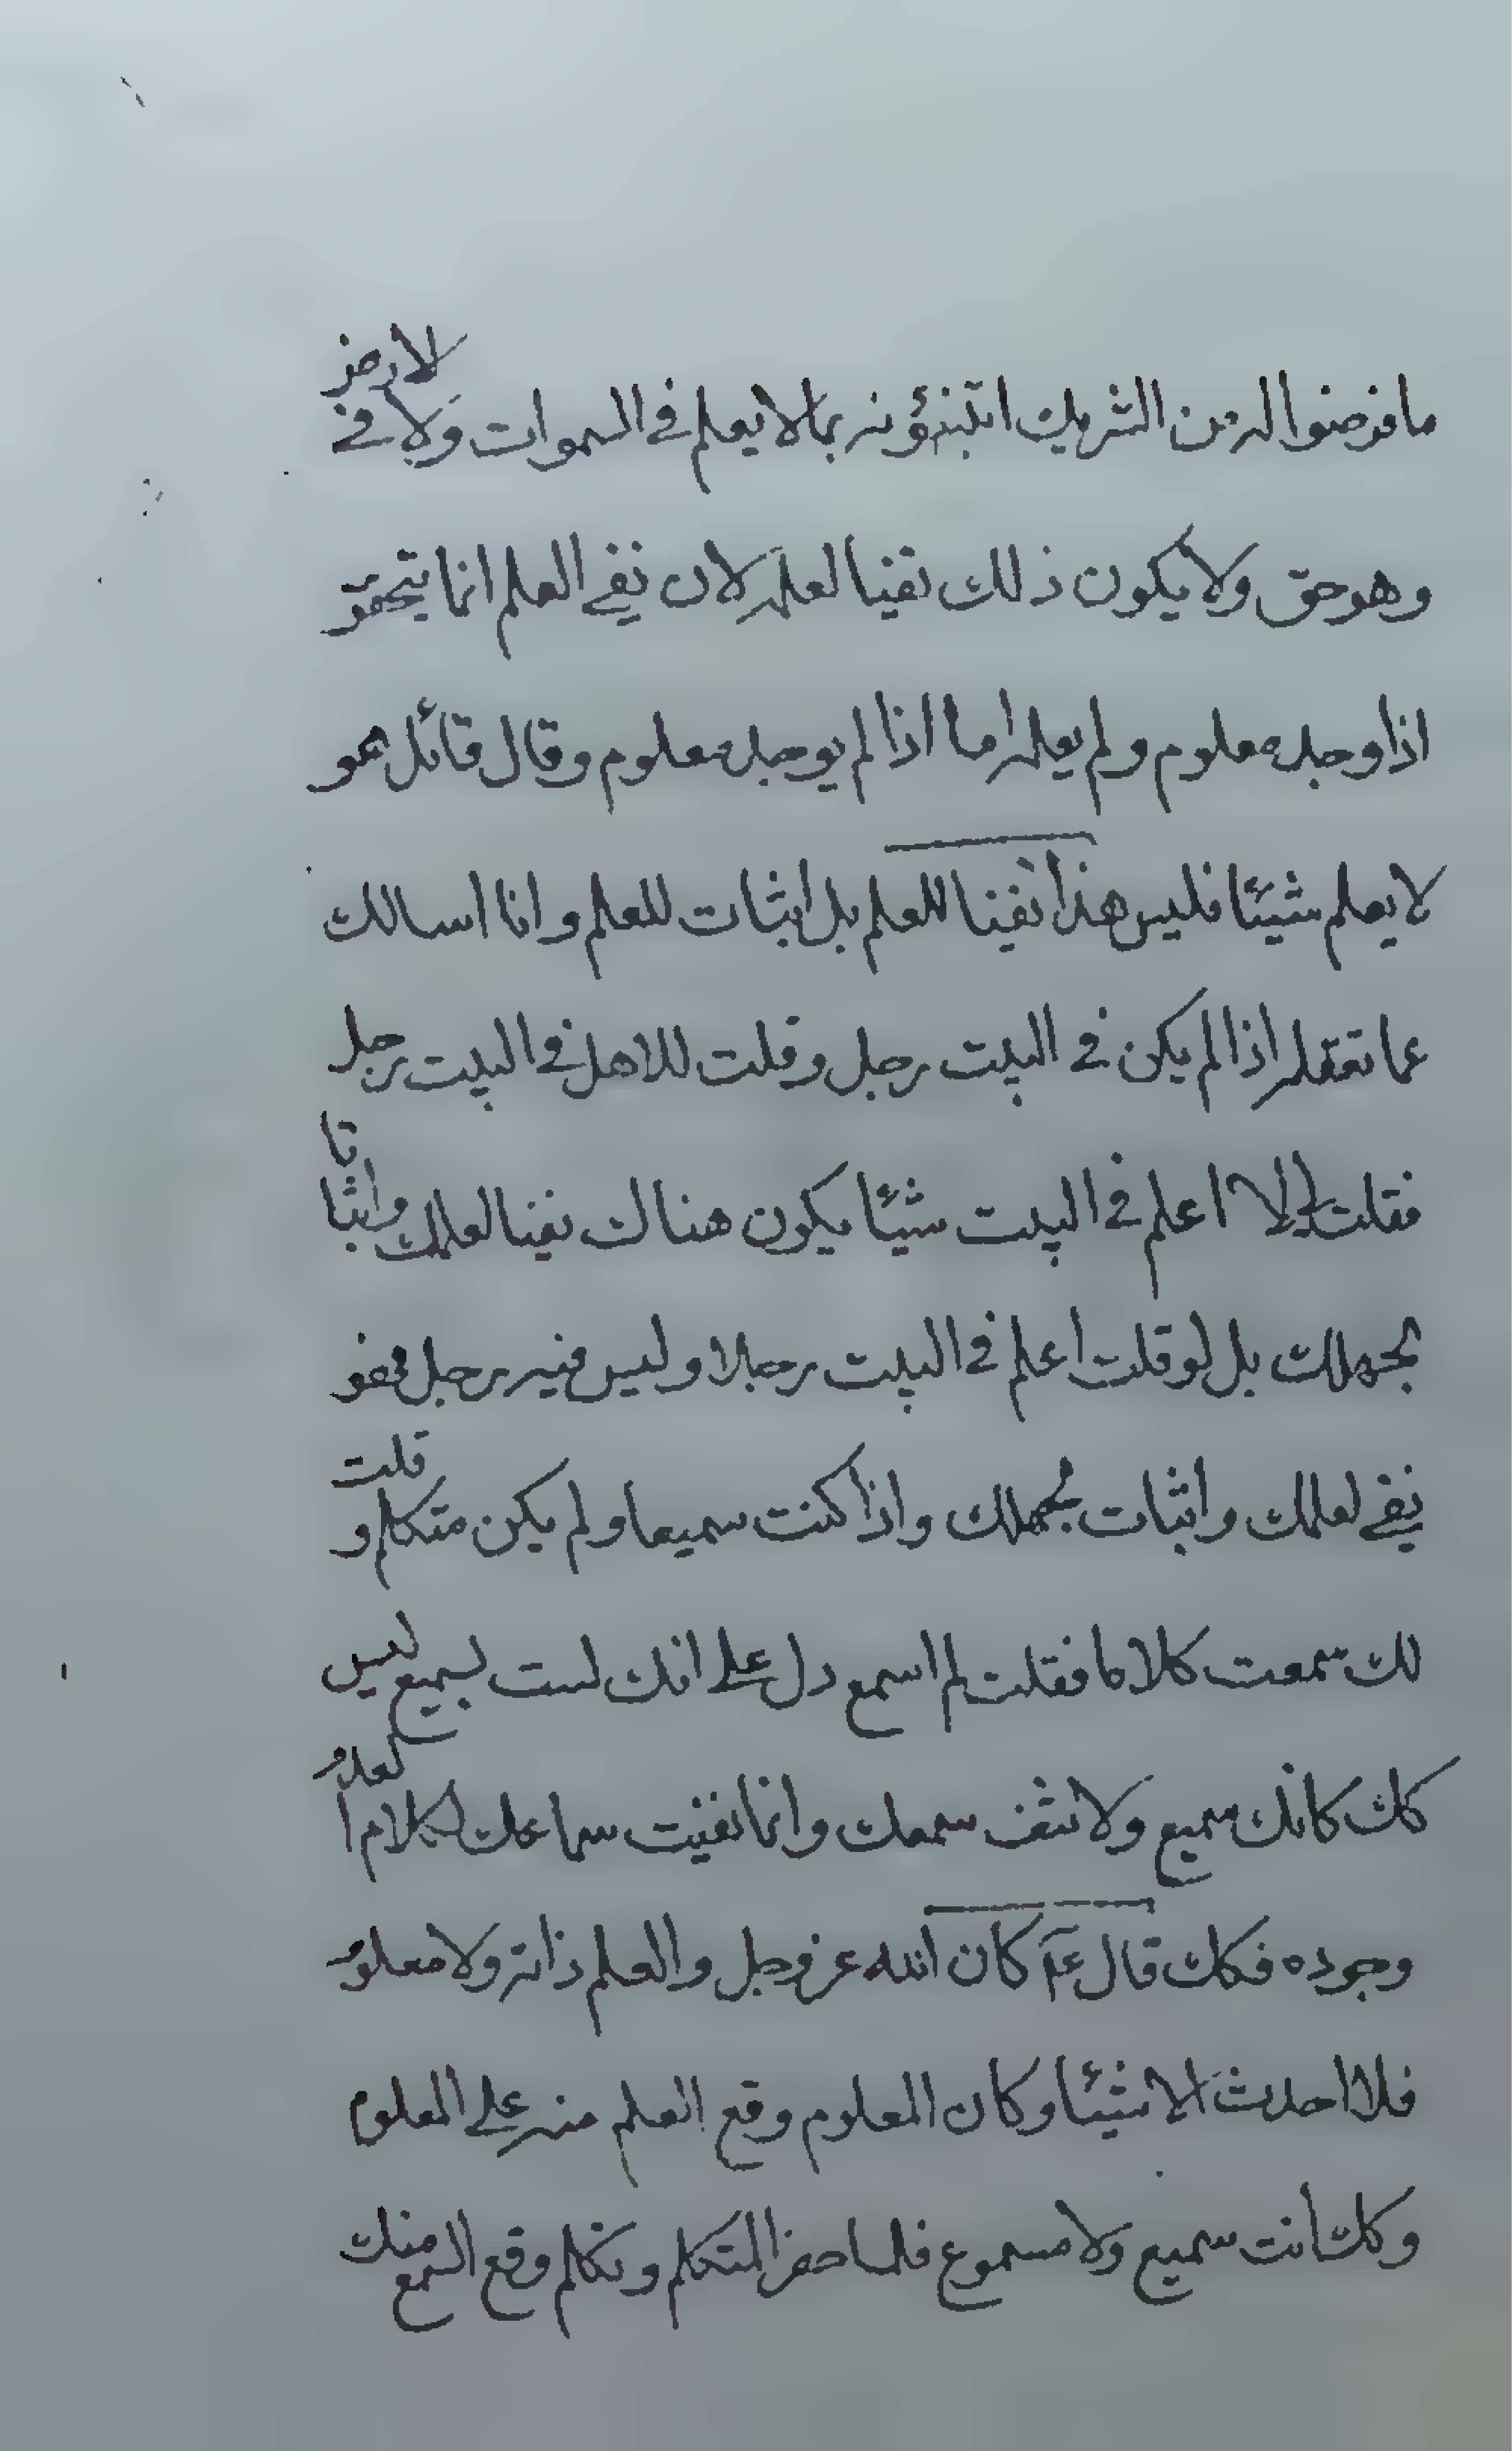 ما فرضوا له من الشريك اتنبئونه بما لا يعلم في السموات ولا في الارض
وهو حق ولا يكون ذلك نفيا لعلمه لان نفي العلم انما يتحقق
اذا وجد معلوم ولم يعلمه اما اذا لم يوجد معلوم وقال قائل هو
لا يعلم شيئا فليس هذا نفينا للعلم بل اثبات للعلم وانا اسالك
عما تعقله اذا لم يكن في البيت رجل وقلت للاهل في البيت رجل
فقلت لي لا اعلم في البيت شيئا يكون هناك نفينا لعلمك واثباتا
بجهلك بل لو قلت اعلم في البيت رجلا وليس فيه رجل فهو
نفي لعلمك واثبات بجهلك واذا كنت سميعا ولم يكن متكلم و قلت
لك سمعت كلاما فقلت لم اسمع دل على انك لست بسميع ليس
كك كانك سميع ولا تنف سمعك وانما نفيت سماعك لكلام العدم
وجوده فكك قال عم كان الله عز وجل والعلم ذاته ولا معلوم
فلا احدث الاشيئا وكان المعلوم وقع العلم منه على المعلوم
وكك انت سميع ولا مسموع فلما حضر المتكلم وتكلم وقع السمع منك